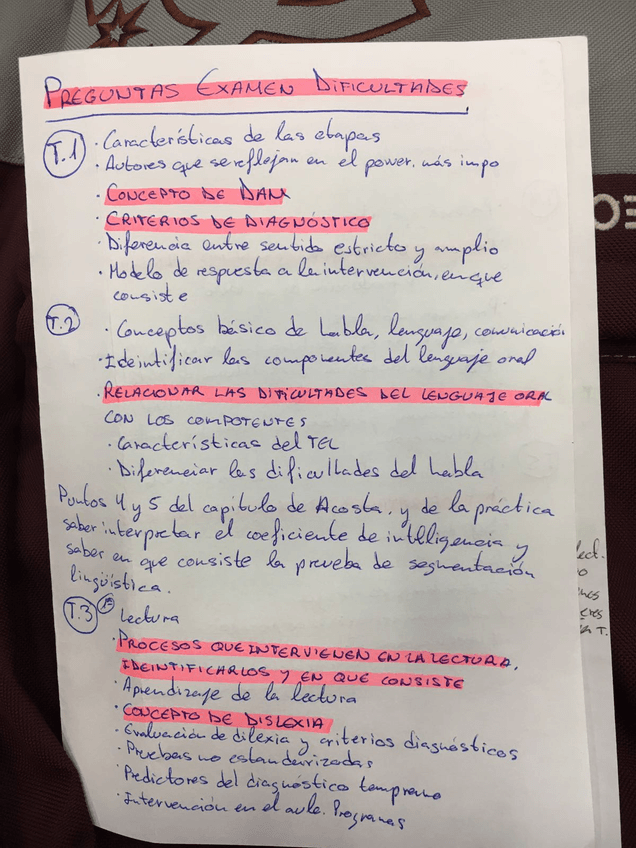 PREGUNTAS EXAMEN DIFICULTADES
T.1
· Características de las etapas
· Autores que se reflejan en el power, más impo
· CONCEPTO DE DAM
· CRITERIOS DE DIAGNÓSTICO
· Diferencia entre sentido estricto y amplio
· Modelo de respuesta a la intervención, en que
consiste
T.2
· Conceptos básico de habla, lenguaje, comunicación
· Ideintificar las componentes del lenguaje oral
· RELACIONAR LAS DIFICULTADES DEL LENGUAJE ORAL
CON LOS COMPOTENTES
· Características del TEL
· Diferenciar las dificultades del habla
Puntos 4 y 5 del capítulo de Acosta, y de la práctica
saber interpretar el coeficiente de intelligencia y
saber en que consiste la prueba de segmentación
lingüística.
T.3
Lectura
· PROCESOS QUE INTERVIENEN EN LA LECTURA,
IDEINTIFICARLOS Y EN QUE CONSISTE
· Aprendizaje de la lectura
· CONCEPTO DE DISLEXIA
· Evaluación de dilexia y criterios diagnósticos
· Pruebas no estandarizadas
· Predictores del diagnóstico temprano
· Intervención en el aula. Programas
EO
lect.